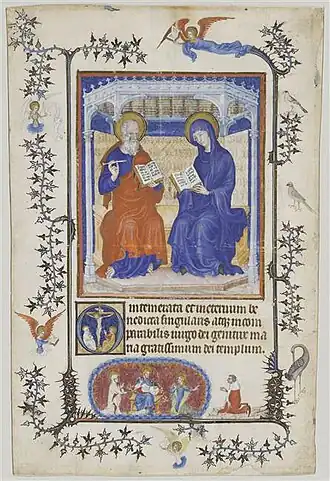 intemerata et ineternum be
nedicta singularis atqz incom
parabilis uirgo dei genitrix ma
ria gratissimum dei templum.